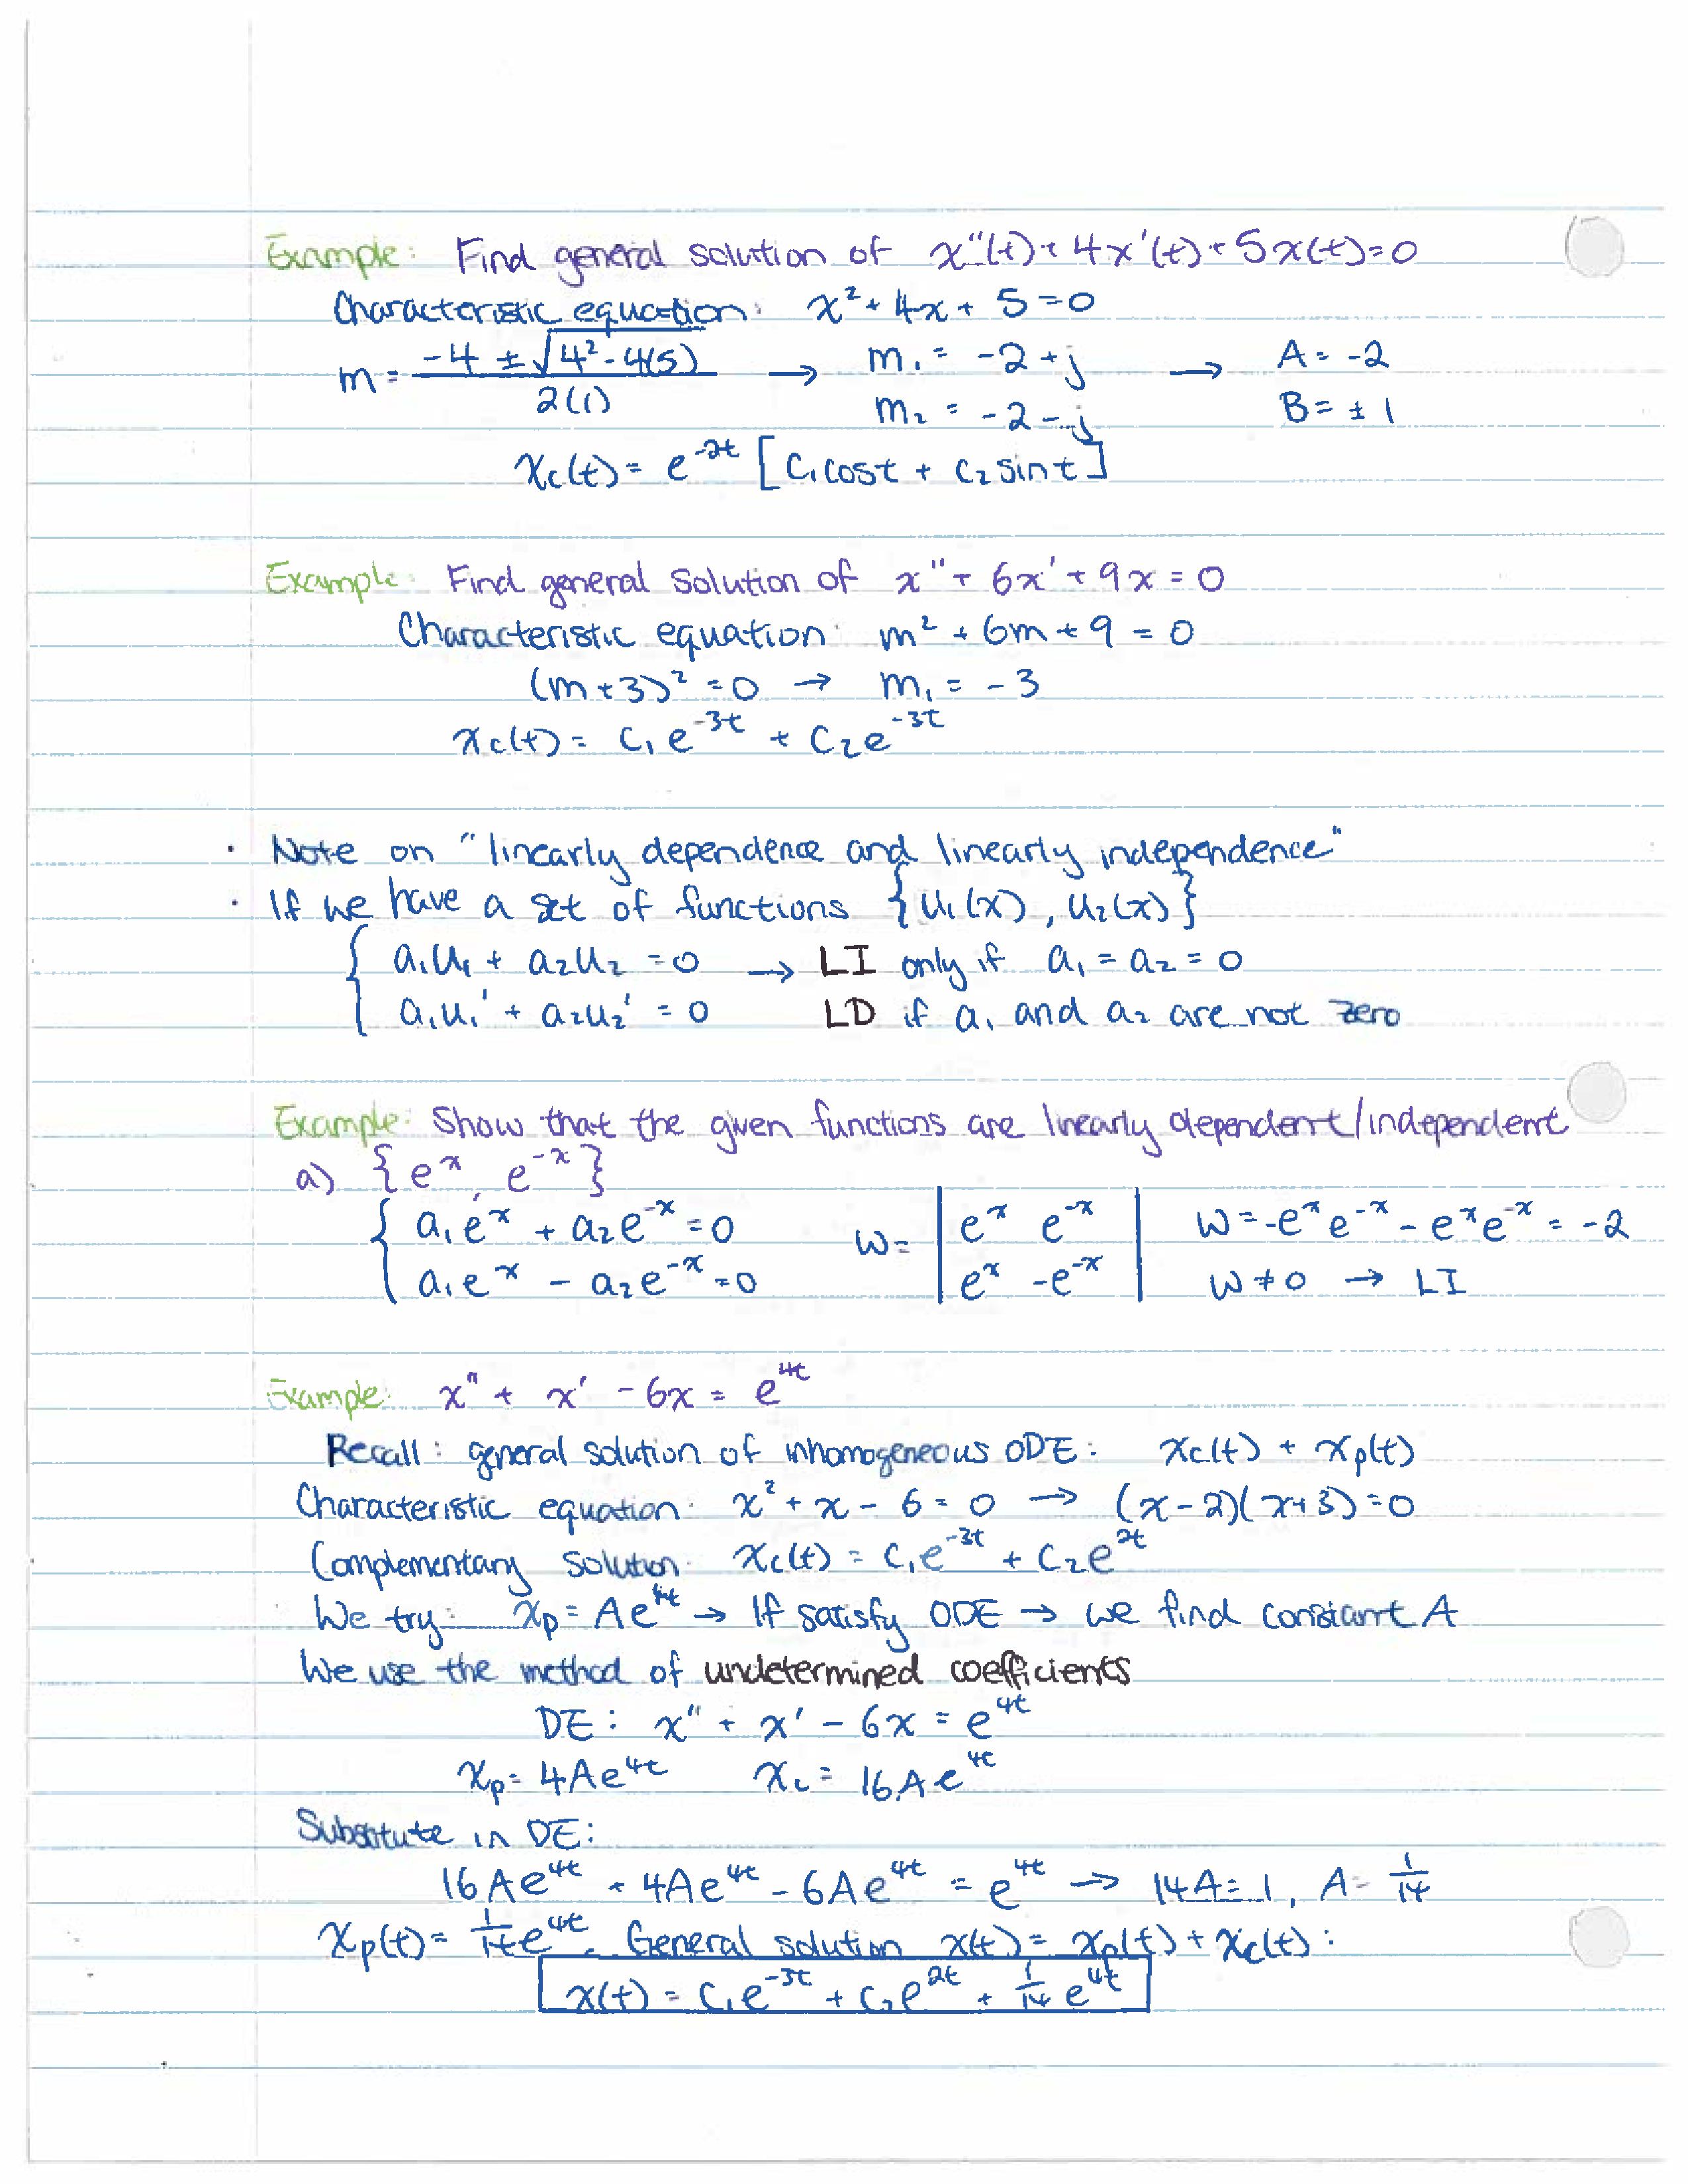 Example: Find general solution of x''(t) + 4x'(t) + 5x(t) = 0
Characteristic equation: x² + 4x + 5 = 0
m = (-4 ± √(4² - 4(5))) / 2(1) → m₁ = -2 + j → A = -2
m₂ = -2 - j B = ± 1
x_c(t) = e^(-2t) [c₁cost + c₂sint]
Example: Find general solution of x'' + 6x' + 9x = 0
Characteristic equation: m² + 6m + 9 = 0
(m+3)² = 0 → m₁ = -3
x_c(t) = c₁e^(-3t) + c₂e^(-3t)
· Note on "linearly dependence and linearly independence"
· If we have a set of functions {u₁(x), u₂(x)}
{ a₁u₁ + a₂u₂ = 0 → LI only if a₁ = a₂ = 0
a₁u₁' + a₂u₂' = 0 LD if a₁ and a₂ are not zero
Example: Show that the given functions are linearly dependent/independent
a) {e^x, e^(-x)}
{ a₁e^x + a₂e^(-x) = 0 W = | e^x e^(-x) | W = -e^x e^(-x) - e^x e^(-x) = -2
a₁e^x - a₂e^(-x) = 0 | e^x -e^(-x) | W ≠ 0 → LI
Example: x'' + x' - 6x = e^(4t)
Recall: general solution of inhomogeneous ODE: x_c(t) + x_p(t)
Characteristic equation: x² + x - 6 = 0 → (x-2)(x+3) = 0
Complementary solution: x_c(t) = c₁e^(-3t) + c₂e^(2t)
We try: x_p = Ae^(4t) → If satisfy ODE → we find constant A
We use the method of undetermined coefficients
DE: x'' + x' - 6x = e^(4t)
x_p = 4Ae^(4t) x_c = 16Ae^(4t)
Substitute in DE:
16Ae^(4t) + 4Ae^(4t) - 6Ae^(4t) = e^(4t) → 14A = 1, A = 1/14
x_p(t) = 1/14 e^(4t). General solution x(t) = x_p(t) + x_c(t):
x(t) = c₁e^(-3t) + c₂e^(2t) + 1/14 e^(4t)